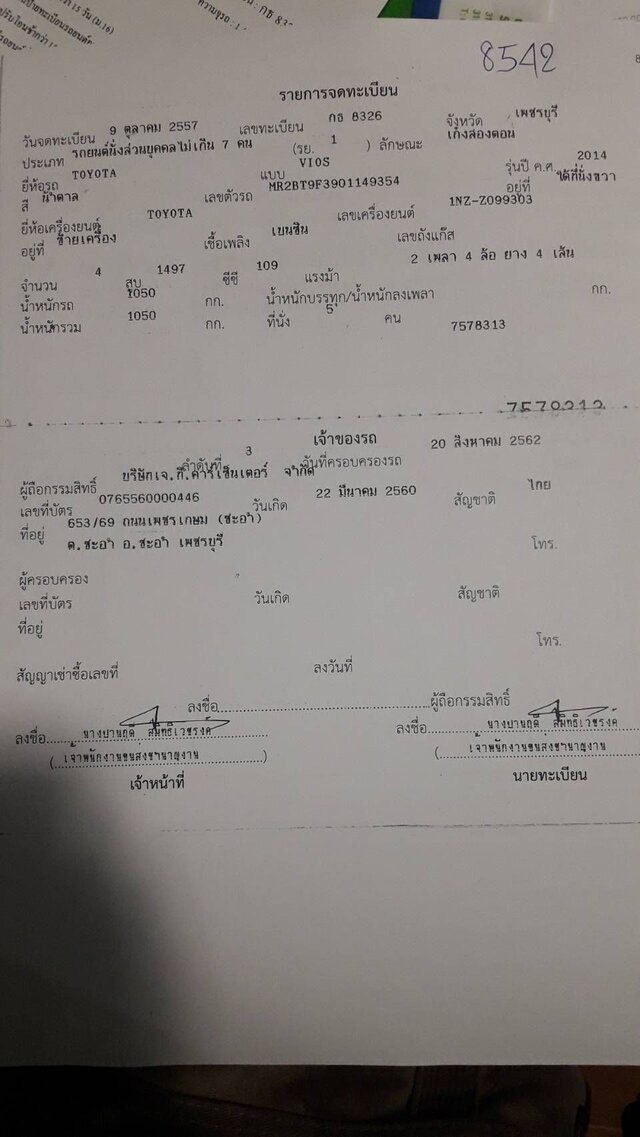 8542
รายการจดทะเบียน
วันจดทะเบียน 9 ตุลาคม 2557 เลขทะเบียน กธ 8326 จังหวัด เพชรบุรี
ประเภท รถยนต์นั่งส่วนบุคคลไม่เกิน 7 คน (รย. 1 ) ลักษณะ เก๋งสองตอน
ยี่ห้อรถ TOYOTA แบบ VIOS รุ่นปี ค.ศ. 2014
สี น้ำตาล เลขตัวรถ MR2BT9F3901149354 อยู่ที่ ใต้ที่นั่งขวา
ยี่ห้อเครื่องยนต์ TOYOTA เลขเครื่องยนต์ 1NZ-Z099303
อยู่ที่ ซ้ายเครื่อง เชื้อเพลิง เบนซิน เลขถังแก๊ส
จำนวน 4 สูบ 1497 ซีซี 109 แรงม้า 2 เพลา 4 ล้อ ยาง 4 เส้น
น้ำหนักรถ 1050 กก. น้ำหนักบรรทุก/น้ำหนักลงเพลา กก.
น้ำหนักรวม 1050 กก. ที่นั่ง 5 คน 7578313
เจ้าของรถ
ลำดับที่ 3 วันที่ครอบครองรถ 20 สิงหาคม 2562
ผู้ถือกรรมสิทธิ์ บริษัทเจ.ที.คาร์เซ็นเตอร์ จำกัด
เลขที่บัตร 0765560000446 วันเกิด 22 มีนาคม 2560 สัญชาติ ไทย
ที่อยู่ 653/69 ถนนเพชรเกษม (ชะอำ)
ต.ชะอำ อ.ชะอำ เพชรบุรี โทร.
ผู้ครอบครอง
เลขที่บัตร วันเกิด สัญชาติ
ที่อยู่
โทร.
สัญญาเช่าซื้อเลขที่ ลงวันที่
ลงชื่อ ผู้ถือกรรมสิทธิ์
ลงชื่อ ลงชื่อ
(เจ้าพนักงานขนส่งชำนาญงาน) (เจ้าพนักงานขนส่งชำนาญงาน
เจ้าหน้าที่ นายทะเบียน